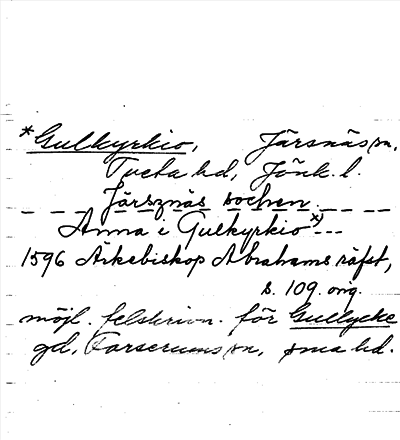 *Gulkyrkio, Järsnäs sn.
Tveta hd, Jönk. l.
Järsznäs sochen.
Anna i Gulkyrkio x) ---
1596 Ärkebiskop Abrahams räfst,
s. 109. orig.
möjl. felskrivn. för Gullycke
gd, Forserums sn, sma hd.